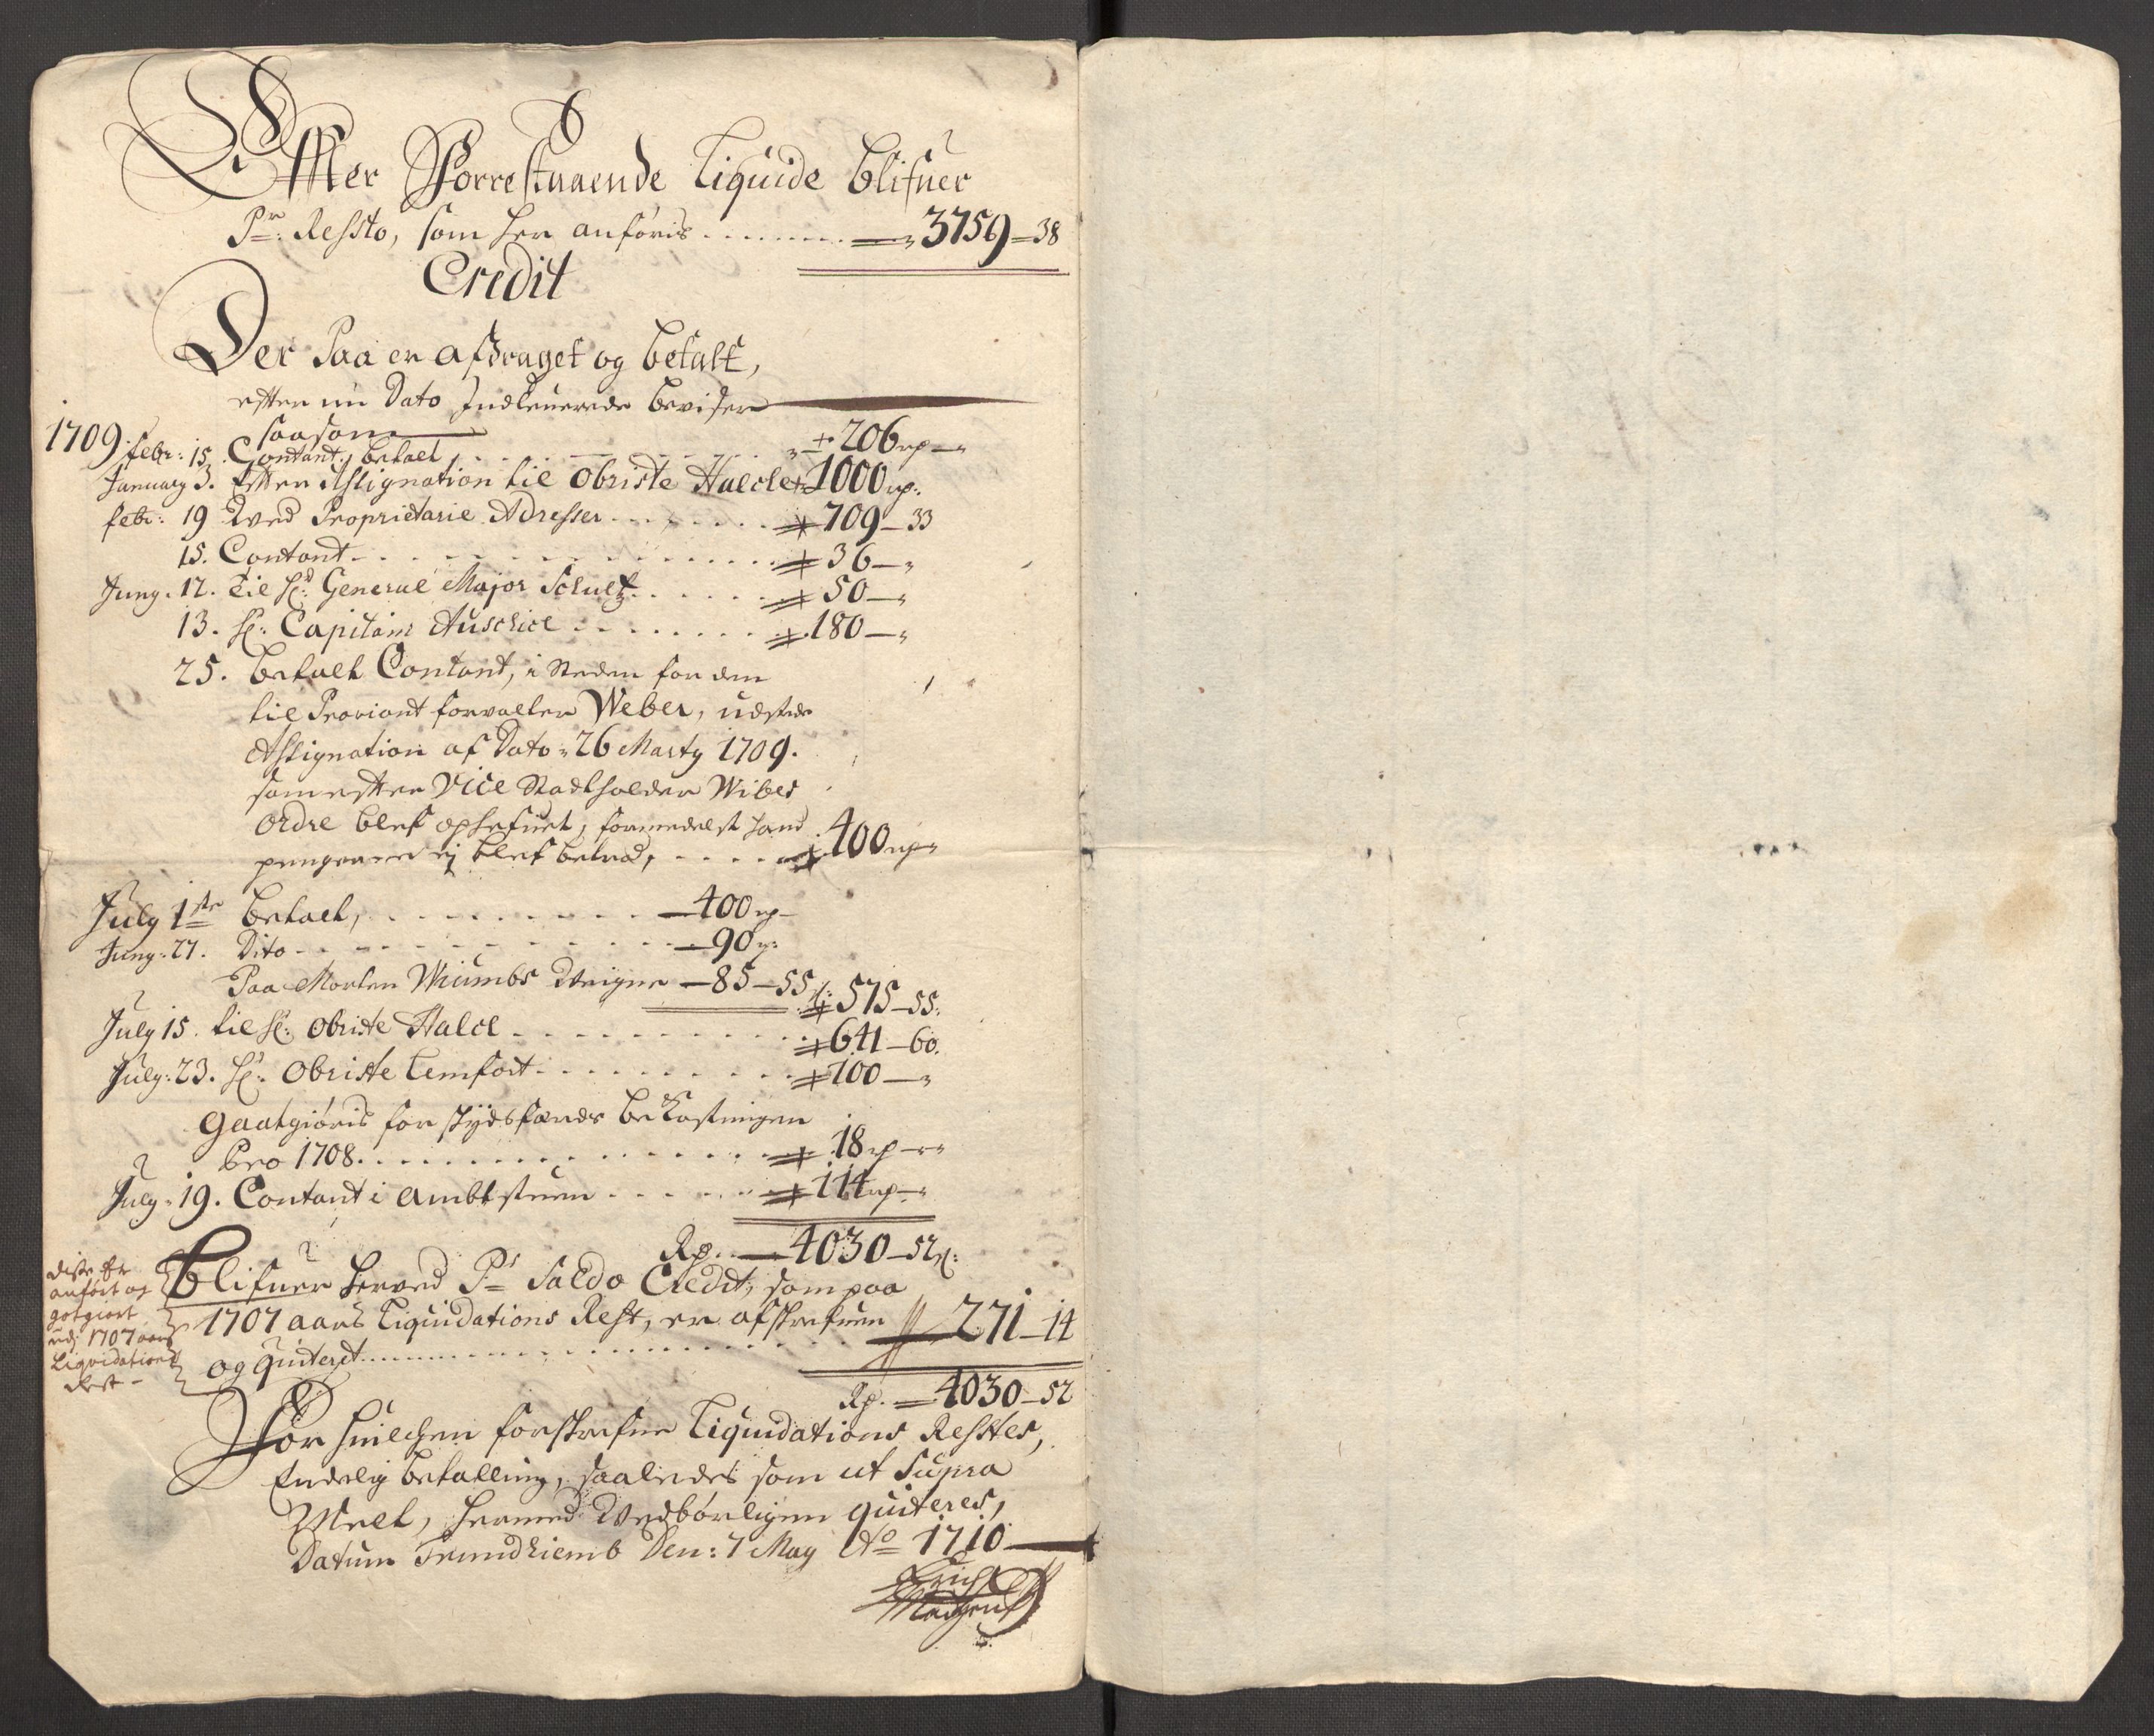 Effter Forrestaaende Liquide blifuer
Pr: Ressto, som her anføris . . . . . . . . 3759–38
Credit
Der Paa er afdraget og betalt,
effter nu Dato Indleuerede beviser
saasom
1709. febr: 15. Contant betalt . . . . . 206 rp –
January 3. Efter Assignation til Obriste 1000 rp.
febr: 19 Wed Proprietarie Adresser . . . . . 709–33
15. Contant . . . . . 36 –
Juny. 12. til Hr: General Major Schultz . . . . . 50 –
13. Hr: Capitain . . . . . 180 –
25. betalt Contant, i steden for den
til Proviant forvalter Weber, udstede
Assignation af Dato 26 Marty 1709.
som effter Vice Stadtholder Wibes
ordre blef ophefuet, formedelst
pengene ej blef betald, . . . . . 400 rp
July 1ste betalt, . . . . . 400 rp –
Juny. 27. Dito . . . . . 90 rp
Paa Morten Wiumbs Weigne – 85–55 575–55.
July 15. til Hr: Obriste . . . . . 641–60.
July. 23. Hr: Obriste Lemfort . . . . . 100 –
Gaatgiøris for skydsferds bekostningen
Pro 1708. . . . . . 18 rp –
July. 19. Contant i Ambtstuen . . . . . 114 rp –
Rp. 4030–52 s:
Blifuer herved Pr Saldo Credit, som paa
1707 aars Liquidations Rest, er afskrefuen
og quiteret . . . . . 271–14
diste er
anfört og
gotgiort
udj 1707 aars
Liqvidations
Rest –
Rp. 4030–52
For huilchen forskrefne Liquidations Resstes,
Endelig betalling, saaledes som ut Supra
Melt, hermed Wedbørligen quiteres,
Datum Trundhiemb Den: 7 May Ao 1710